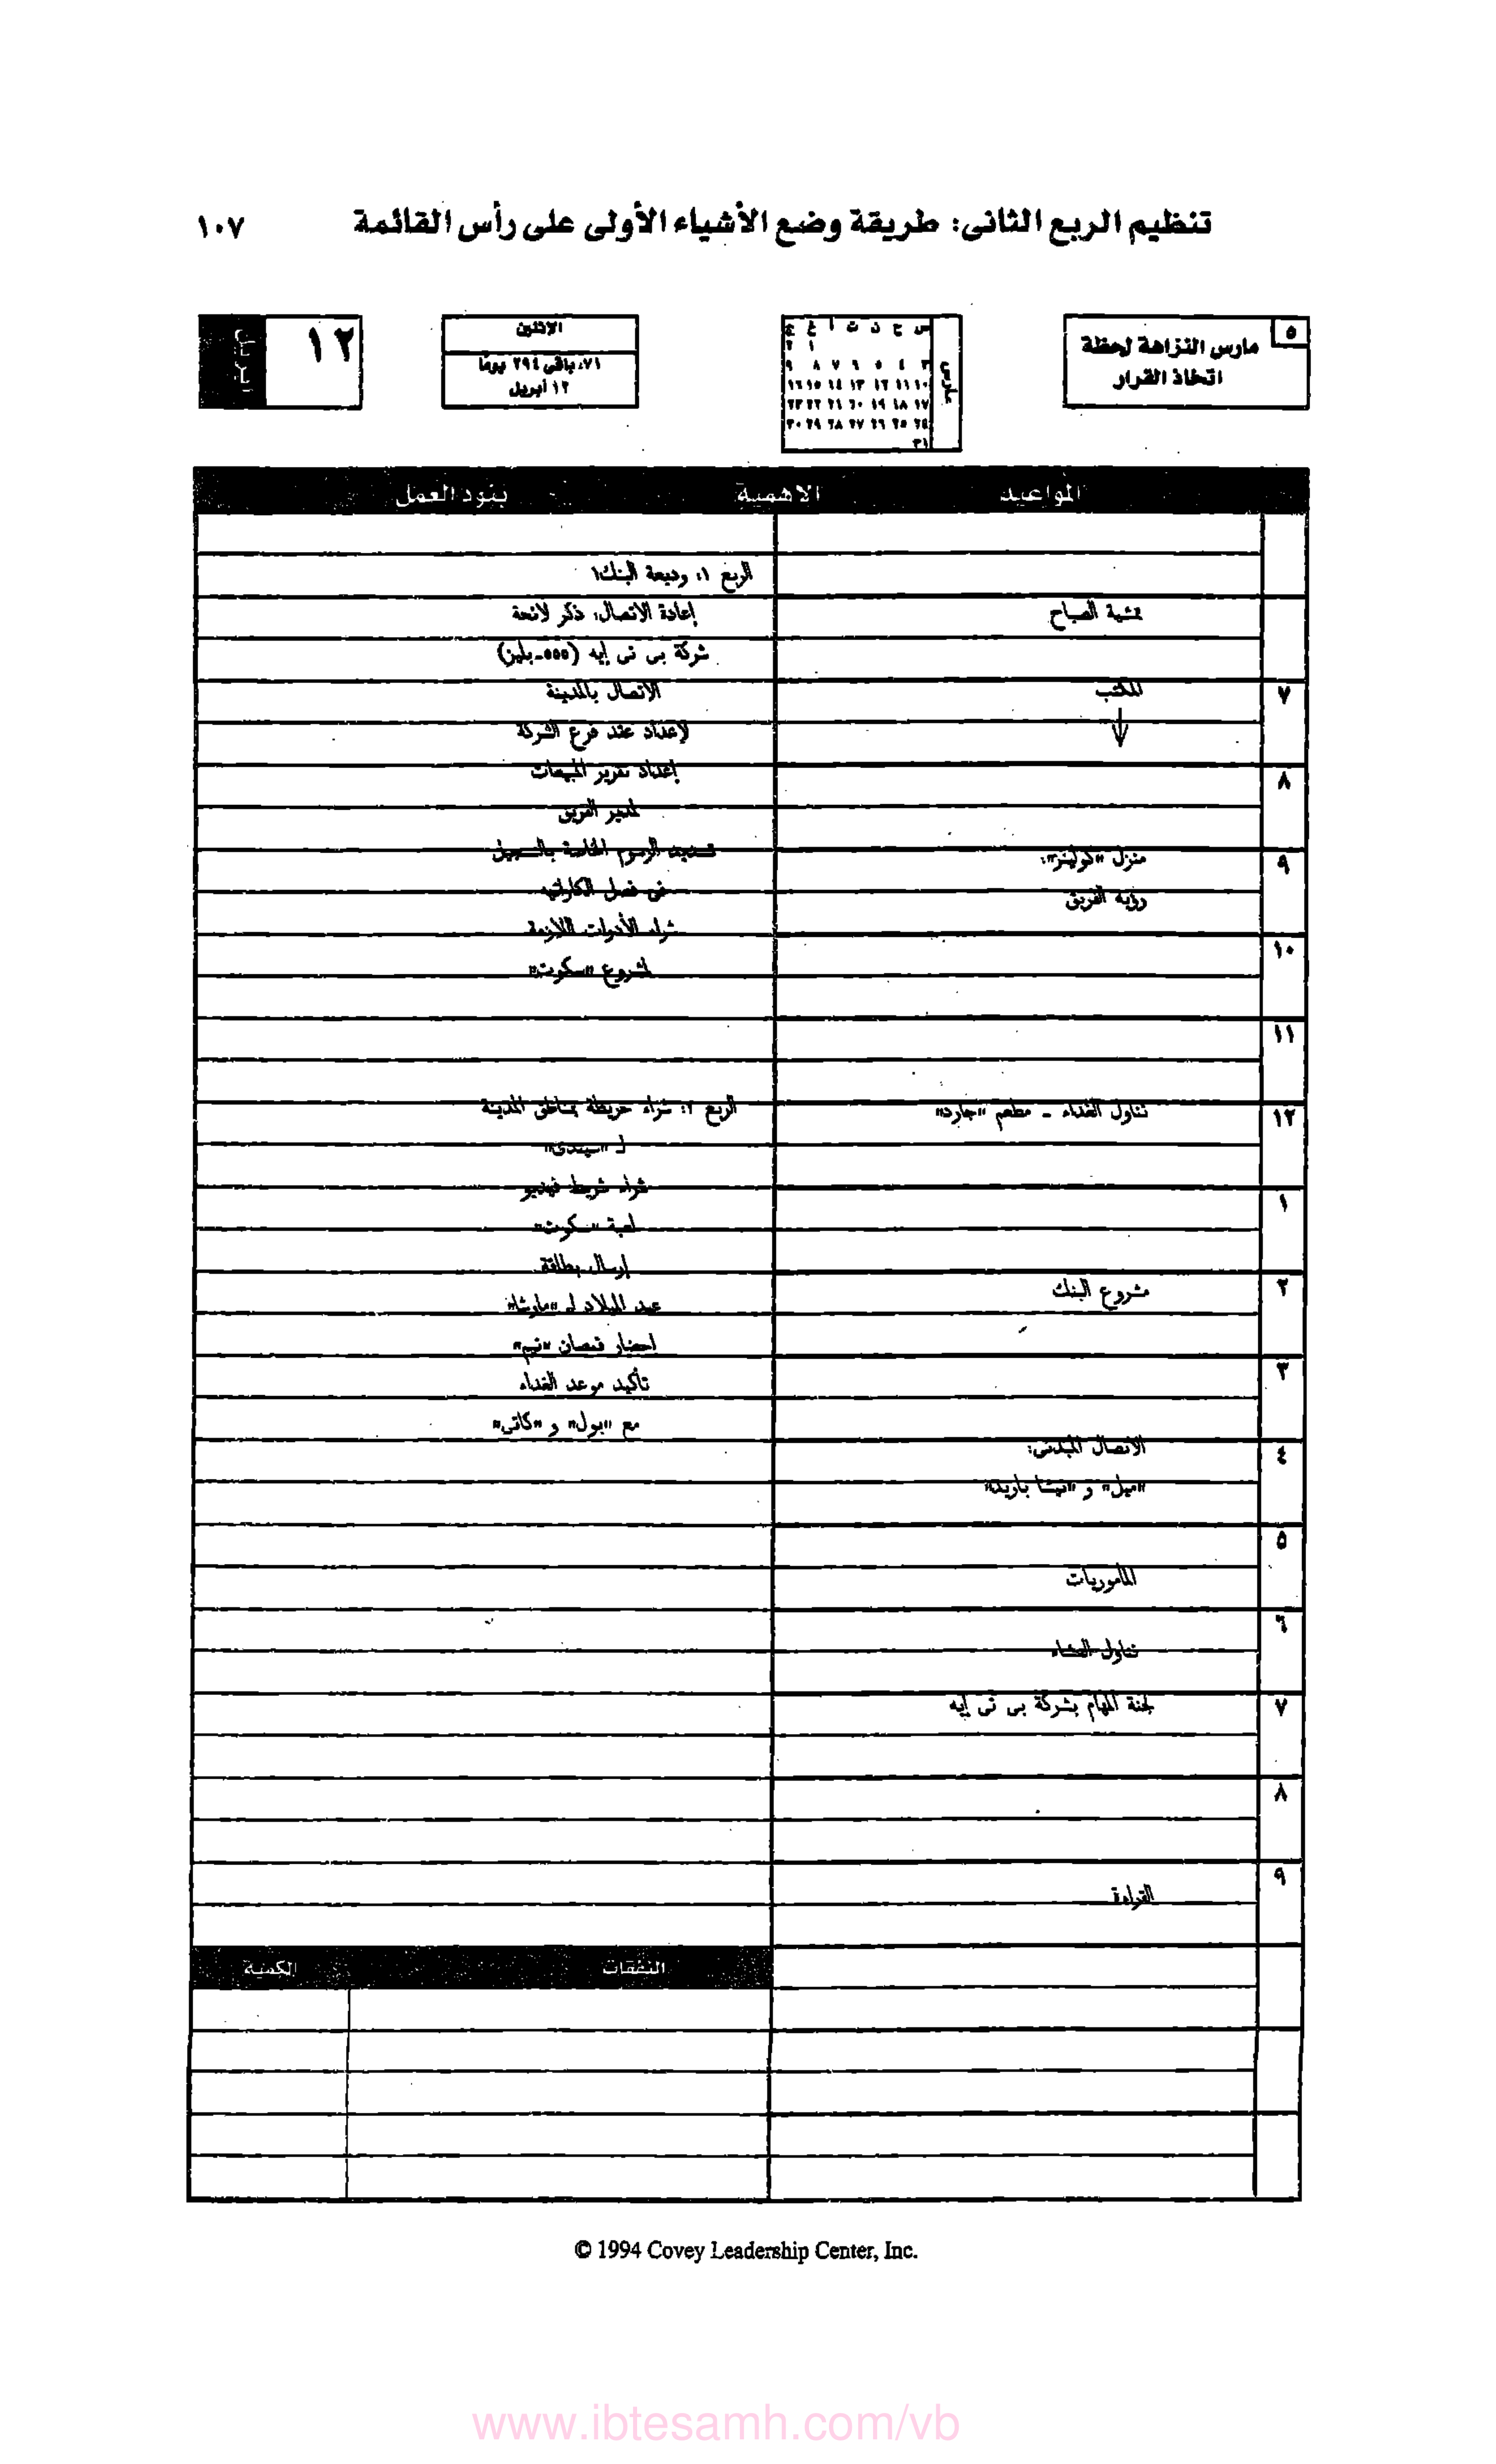 تنظيم الربع الثانى: طريقة وضع الأشياء الأولى على رأس القائمة ١٠٧
٥
مارس النزاهة لحظة
اتخاذ القرار
مارس
س ح ن ث أ خ ج
١ ٢
٣ ٤ ٥ ٦ ٧ ٨ ٩
١٠ ١١ ١٢ ١٣ ١٤ ١٥ ١٦
١٧ ١٨ ١٩ ٢٠ ٢١ ٢٢ ٢٣
٢٤ ٢٥ ٢٦ ٢٧ ٢٨ ٢٩ ٣٠
٣١
الاثنين
٧١، باقى ٢٩٤ يوما
١٢ أبريل
١٢
ابريل
المواعيد الاهمية بنود العمل
الربع ١: وديعة البنك١
تمشية الصباح إعادة الاتصال: ذكر لائحة
شركة بى تى إيه (٥٥٥-بلينز)
٧ المكتب الاتصال بالمدينة
لإعداد عند فرع الشركة
٨ إعداد تقرير المبيعات
لمدير الفريق
٩ منزل «كولينز»: تسديد الرسوم الخاصة بالتسجيل
رؤية الفريق فى فصل الكاراتيه
١٠ شراء الأدوات اللازمة
لمشروع «سكوت»
١١
١٢ تناول الغداء - مطعم «جارد» الربع ٢: شراء خريطة بمناطق المدينة
لـ «سيندى»
١ شراء شريط فيديو
لعبة «سكوت»
إرسال بطاقة
٢ مشروع البنك عيد الميلاد لـ «مارشا»
احضار قمصان «تيم»
٣ تأكيد موعد الغداء
مع «بول» و «كاتى»
٤ الاتصال المبدئى:
«ميل» و «نيشا باريد»
٥
المأموريات
٦
تناول العشاء
٧ لجنة المهام بشركة بى تى إيه
٨
٩
القراءة
النفقات الكمية
© 1994 Covey Leadership Center, Inc.
www.ibtesamh.com/vb